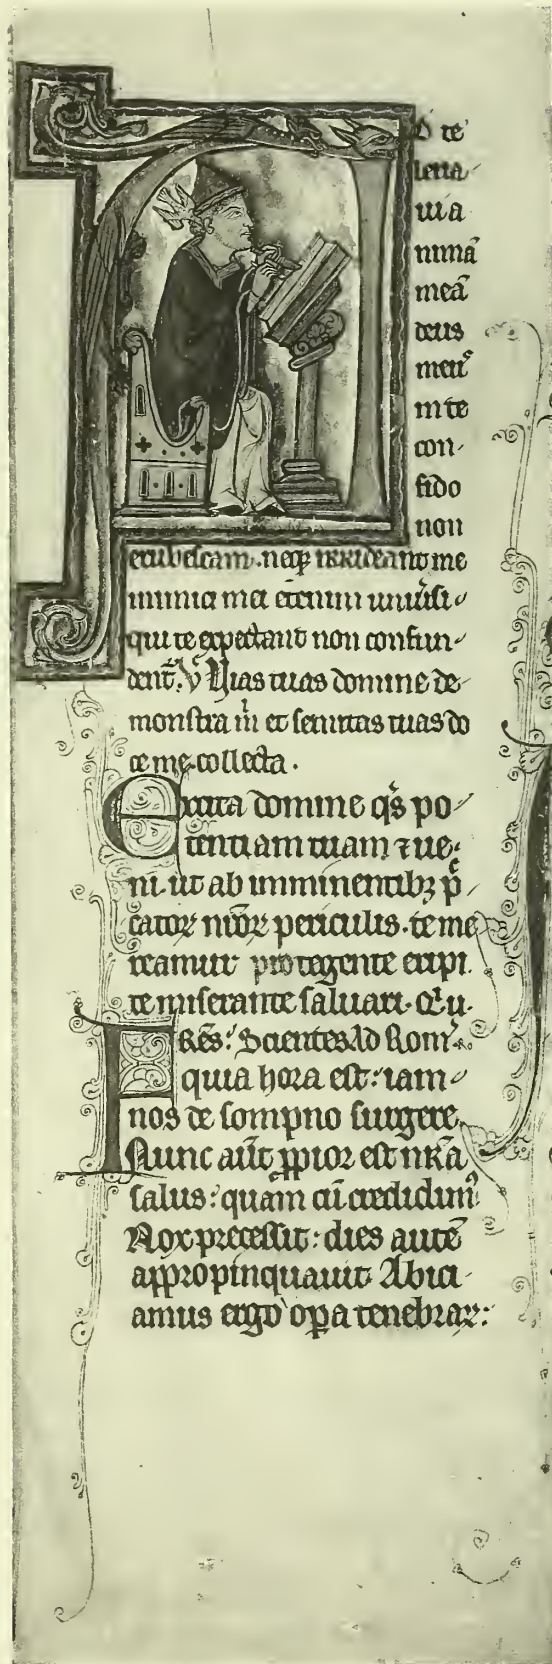 D te
leua
ui a
nimā
meā
deus
meus
in te
con
fido
non
erubescam. neq; irrideant me
inimici mei etenim uniu̓si
qui te expectant non confun
dent̄. V̓ Uias tuas domine de
monstra m̓ et semitas tuas do
ce me. collecta.
Excita domine q̄s po
tentiam tuam ⁊ ue
ni. ut ab imminentibꝫ p̄
catoꝝ nr̄oꝝ periculis. te me
reamur protegente eripi.
te miserante saluari. Q̓ u.
FRĒS: Scientes Ad Rom̓.
quia hora est: iam
nos de sompno surgere.
Nunc aūt ꝓpior est nr̄a
salus: quam cū credidim᷒
Nox precessit: dies autē
appropinquauit. Abici
amus ergo oꝑa tenebraꝝ: